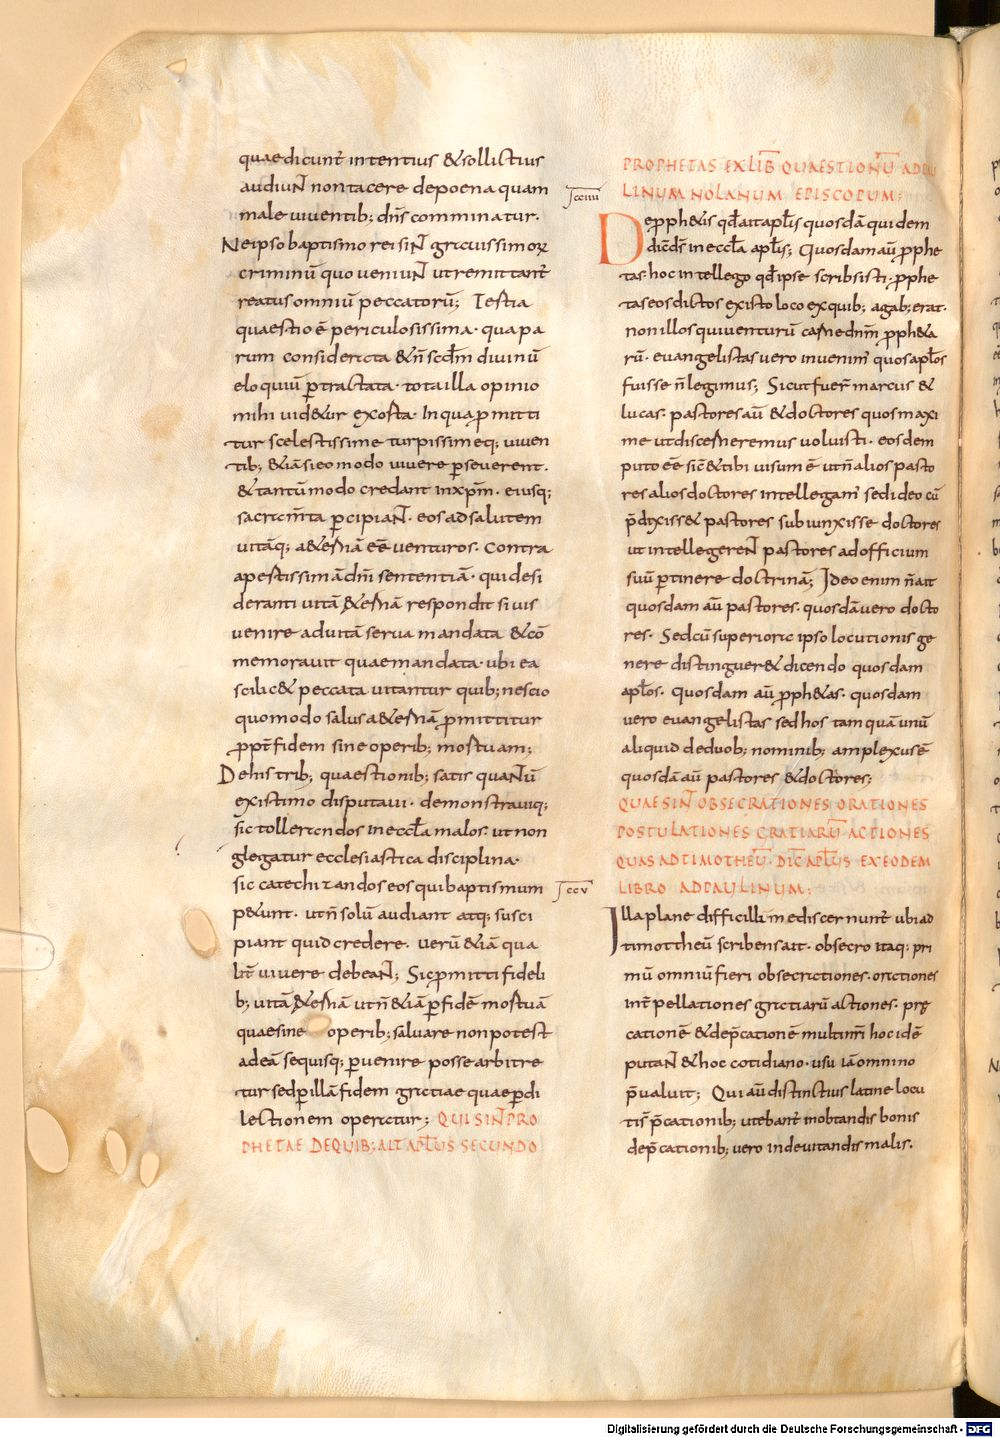 quae dicunt̄ intentius & sollicitius
audiuNt non tacere de poena quam
male uiuentib; dn̄s comminatur.
Ne ipso baptismo rei siNt grauissimorꝝ
criminū quo ueniuNt ut remittant̄
reatus omniū peccatorū; Iestia
quaestio ē periculosissima. qua pa
rum considerata & n̄ scdm̄ diuinū
eloquiū ꝑtractata. tota illa opinio
mihi uid&ur exorta. In qua ꝑmitti
tur scelestissime turpissimeq; uiuen
tib; &iā si eo modo uiuere ꝑseuerent.
& tantūmodo credant in xp̄m. eiusq;
sacram̄ta ꝑcipiaNt. eos ad salutem
uitāq; a&ernā eē uenturos. Contra
apestissimā dn̄i sententiā. qui desi
deranti uitā a&ernā respondit si uis
uenire ad uitā serua mandata & cō
memorauit quae mandata. ubi ea
scilic& peccata uitantur quib; nescio
quomodo salus a&ernā ꝓmittitur
ꝓpt̄ fidem sine operib; mortuam;
De his trib; quaestionib; satis quaNtū
existimo disputaui. demonstrauiq;
sic tollerandos in eccłā malos. ut non
glegatur ecclesiastica disciplina.
sic catechizandos eos qui baptismum
p&unt. ut n̄ solū audiant atq; susci
piant quid credere. uerū &iā qua
lit̄ uiuere debeaNt; Sic ꝓmitti fideli
b; uitā a&ernā ut n̄ &iā ꝑ fidē mortuā
quae sine operib; saluare non potest
ad eā se quisq; ꝑuenire posse arbitre
tur sed ꝑ illā fidem gratiae quae ꝑ di
lectionem operatur; QUI SINT PRO
PHETAE DE QUIB; AIT APŁUS SECUNDO
PROPHETAS EX LIB̄ QUAESTIONŪ AD PAU
LINUM NOLANUM EPISCOPUM;
cciiii
De ꝓph&is qd̄ ait apłs quosdā quidem
dic̄ ds̄ in eccłā apłs; Quosdam aū ꝓphe
tas. hoc intellego qd̄ ipse scribsisti. ꝓphe
tas eos dictos ex isto loco ex quib; agab; erat.
non illos qui uenturū carne dnm̄ ꝓph&a
rū. euangelistas uero inuenim̄ quos apłos
fuisse n̄ legimus; Sicut fuer̄ marcus &
lucas. pastores aū & doctores quos maxi
me ut discerneremus uoluisti. eosdem
puto eē sic̄ & tibi uisum ē ut n̄ alios pasto
res alios doctores intellegam̄ sed ideo cū
p̄dixiss& pastores subiunxisse doctores
ut intellegereNt pastores ad officium
suū ꝑtinere doctrinā; Ideo enim n̄ ait
quosdam aū pastores. quosdā uero docto
res. Sed cū superiora ipso locutionis ge
nere distinguer& dicendo quosdam
apłos. quosdam aū ꝓph&as. quosdam
uero euangelistas sed hos tamquā unū
aliquid deduob; nominib; amplexus ē
quosdā aū pastores & doctores;
QUAE SINT OBSECRATIONES ORATIONES
POSTULATIONES GRATIARŪ ACTIONES
QUAS AD TIMOTHEŪ. DIC̄ APŁUS EX EODEM
LIBRO AD PAULINUM;
ccv
Illa plane difficillim e discernunt̄ ubi ad
timottheū scribens ait. obsecro itaq; pri
mū omniū fieri obsecrationes. orationes
int̄pellationes gratiarū actiones. prę
cationē & dep̄cationē multi nr̄i hoc idē
putaNt & hoc cotidiano. usu iā omnino
p̄ualuit; Qui aū distinctius latine locu
ti s̄ p̄cationib; utebant̄ in obtandis bonis
dep̄cationib; uero in deuitandis malis.
Digitalisierung gefördert durch die Deutsche Forschungsgemeinschaft - DFG